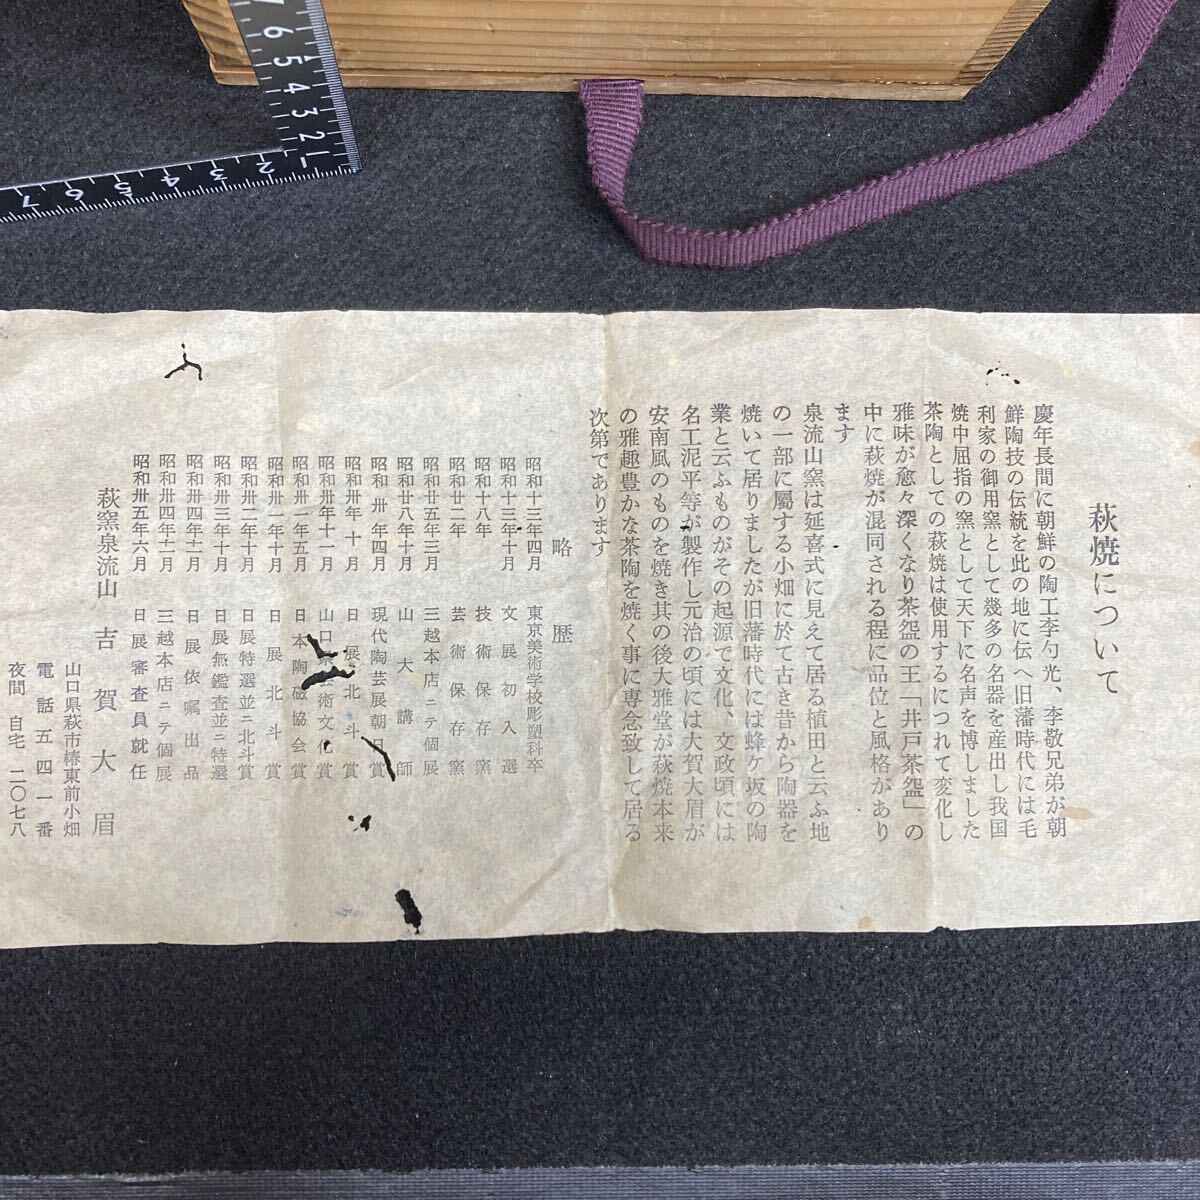 萩焼について
慶年長間に朝鮮の陶工李勺光、李敬兄弟が朝
鮮陶技の伝統を此の地に伝へ旧藩時代には毛
利家の御用窯として幾多の名器を産出し我国
焼中屈指の窯として天下に名声を博しました
茶陶としての萩焼は使用するにつれて変化し
雅味が愈々深くなり茶盌の王「井戸茶盌」の
中に萩焼が混同される程に品位と風格があり
ます
泉流山窯は延喜式に見えて居る植田と云ふ地
の一部に屬する小畑に於て古き昔から陶器を
焼いて居りましたが旧藩時代には蜂ケ坂の陶
業と云ふものがその起源で文化、文政頃には
名工泥平等が製作し元治の頃には大賀大眉が
安南風のものを焼き其の後大雅堂が萩焼本来
の雅趣豊かな茶陶を焼く事に専念致して居る
次第であります
略歴
昭和十三年四月 東京美術学校彫塑科卒
昭和十三年十月 文展初入選
昭和十八年 技術保存窯
昭和廿二年 芸術保存窯
昭和廿五年三月 三越本店ニテ個展
昭和廿八年十月 山大講師
昭和卅年四月 現代陶芸展朝日賞
昭和卅年十月 日展北斗賞
昭和卅年十一月 山口県芸術文化賞
昭和卅一年五月 日本陶磁協会賞
昭和卅一年十月 日展北斗賞
昭和卅二年十月 日展特選並ニ北斗賞
昭和卅三年十月 日展無鑑査並ニ特選
昭和卅四年十二月 日展依嘱出品
昭和卅四年十二月 三越本店ニテ個展
昭和卅五年六月 日展審査員就任
萩窯泉流山 吉賀大眉
山口県萩市椿東前小畑
電話五四一番
夜間 自宅 二〇七八
7 6 5 4 3 2 1
2 3 4 5 6 7